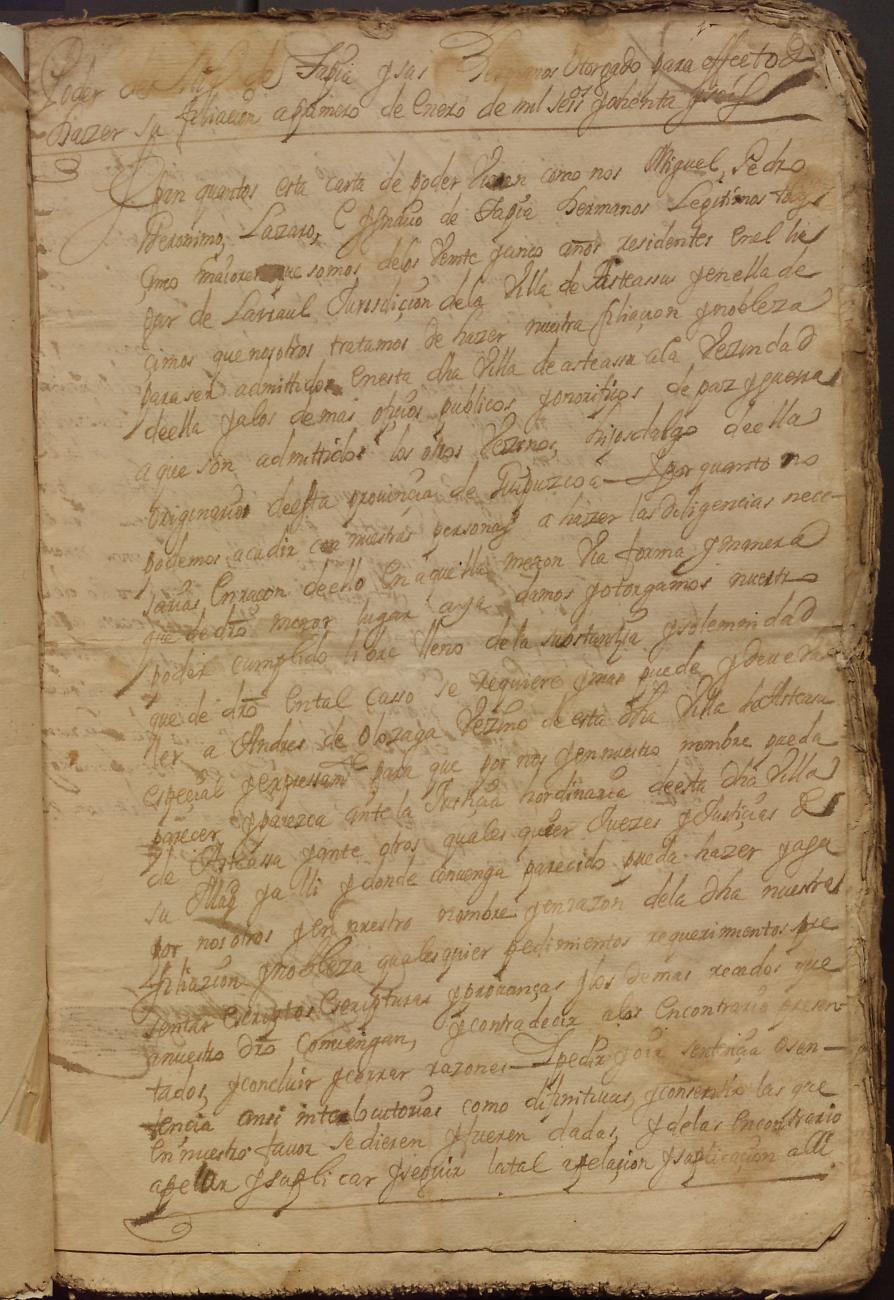 Poder de Mig.l de Tapia y sus Hermanos otorgado para effecto de
hazer su filiacion a primero de Enero de mil seis y ochenta y seis
Sepan quantos esta carta de poder Vieren como nos Miguel, Pedro
Gerónimo, Lazaro, de Tapia hermanos Legitimos todos
cinco maiores que somos de los Veinte y cinco años residentes en el lu
gar de Larraul Jurisdiçion de la Villa de Asteassu y en ella de
çimos que nosotros tratamos de hazer nuestra filiaçion y nobleza
para ser admittidos en esta dha Villa de asteassu a la Vezindad
de ella y a los demas ofiçios publicos y onorificos de paz y guerra
a que son admittidos los otros Vezinos, hijosdalgo de ella
originarios de esta provinçia de Guipuzcoa — Y por quanto no
podemos acudir con nuestras personas a hazer las diligencias nece-
sarias en raçon de ello en aquella mejor Via forma y manera
que de dro mejor lugar aya damos y otorgamos nuestro
poder cumplido libre lleno de la substançia y solemnidad
que de dro en tal casso se requiere y mas puede y deve va
ler a Andres de Olozaga Vezino de esta dha Villa de Asteasu
especial y expressamte para que por nos y en nuestro nombre pueda
parecer y parezca ante la Justiçia hordinaria de esta dha Villa
de Asteassu y ante otros quales quier Juezes y Justiçias de
su Magd y alli y donde convenga parecido pueda hazer y aga
por nosotros y en nuestro nombre y en razon de la dha nuestra
filiazion y nobleza quales quier pedimientos requerimientos pre
sentar escriptos escripturas y provanças y los demas recados que
a nuestro dro convengan, y contradecir a los en contrario presen-
tados, y concluir y cerrar razones — Y pedir y oir sentençia o sen-
tencia ansi interlocutorias como difinitivas, y consentir las que
en nuestro favor se dieren y fueren dadas, y de las en contrario
apelar y suplicar y seguir la tal apelaçion y suplicaçion alli